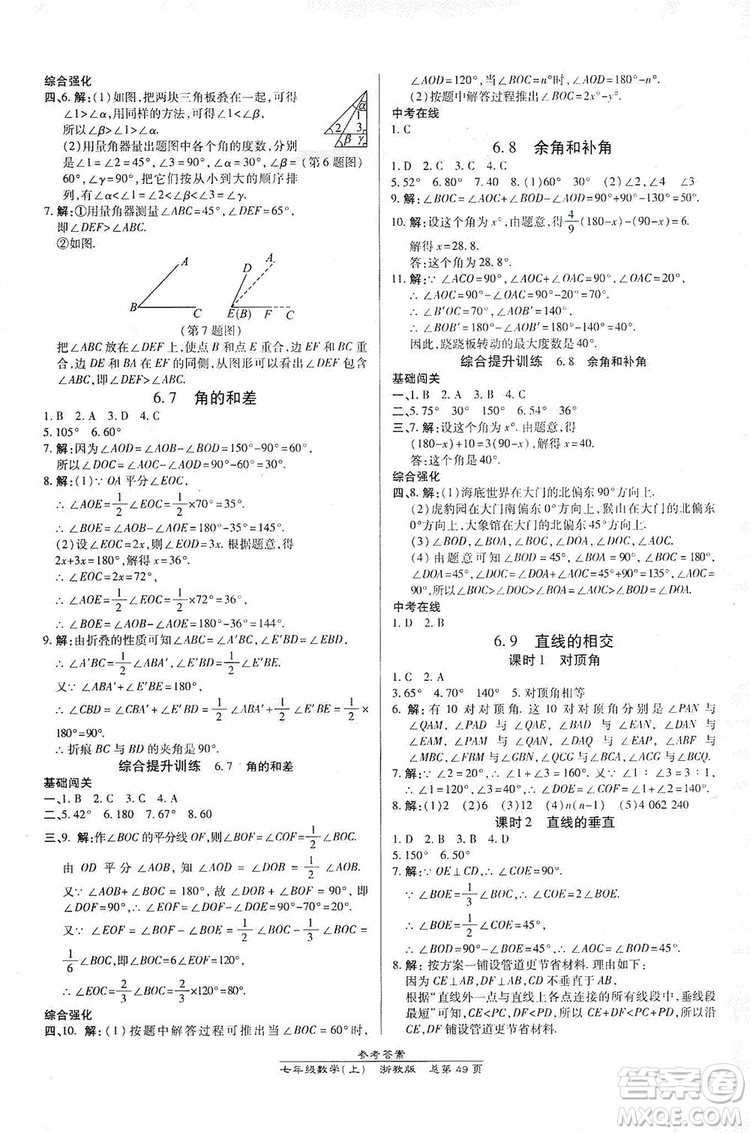 综合强化
四、6. 解:(1)如图,把两块三角板叠在一起,可得
∠α<∠β,用同样的方法,可得∠β<∠γ,
所以∠α<∠β<∠γ.
(2)用量角器量出题图中各个角的度数,分
别是∠α=30°,∠β=45°,∠γ=
60°,有∠α<∠β<∠γ.
7. 解:①用量角器测量∠ABC=45°,∠DEF=65°,
即∠ABC<∠DEF.
②如图.
(第6题图)
α
1
2 3
β γ
A
B C
D A
E(B) F C
(第7题图)
把∠ABC放在∠DEF上,使点B和点E重合,边BC和EF
重合,边DE和BA在EF的同侧,从图形可以看出∠DEF
包含∠ABC,所以∠DEF>∠ABC.
6.7 角的和差
1. B 2. A 3. D 4. C
5. 105° 6. 60°
7. 解:因为∠AOD=∠AOB-∠BOD=150°-90°=60°,
所以∠DOC=∠AOC-∠AOD=90°-60°=30°.
8. 解:(1)∵OA平分∠EOC,
∴∠AOE=1/2∠EOC=1/2×70°=35°.
∴∠BOE=∠AOB-∠AOE=180°-35°=145°.
(2)设∠EOC=2x,∠EOD=3x.根据题意,得
2x+3x=180°,解得x=36°.
∴∠EOC=2x=72°.
∴∠AOE=1/2∠EOC=1/2×72°=36°.
∴∠BOE=∠AOB-∠AOE=180°-36°=144°.
9. 解:由折叠的性质可知∠ABC=∠A′BC,∠EBD=∠E′BD,
∴∠A′BC=1/2∠ABA′,∠E′BD=1/2∠EBE′.
又∵∠ABA′+∠EBE′=180°,
∴∠CBD=∠CBA′+∠E′BD=1/2(∠ABA′+∠EBE′)=1/2×
180°=90°.
∴折痕BC与BD的夹角是90°.
综合提升训练 6.7 角的和差
基础闯关
一、1. B 2. B 3. C 4. C
二、5. 42° 6. 180 7. 68 8. 60
三、9. 解:作∠BOC的平分线OF,则∠BOF=∠COF=1/2∠BOC.
由OD平分∠AOC,则∠AOD=∠COD=1/2∠AOC.
又∵∠AOC+∠BOC=180°,∴∠DOF=90°.又∵∠DOE=
∠DOF=90°,∴∠EOF=∠BOE.
又∵∠EOF=∠BOF-∠BOE=1/2∠BOC-1/3∠BOC=
1/6∠BOC=
综合强化
四、10. 解:(1)按题中解答过程可推出当∠BOC=60°时,
∠AOD=120°,当∠BOC=n°时,∠AOD=180°-n°.
(2)按题中解答过程推出∠BOC+∠AOD=180°.
中考在线
1. C
6.8 余角和补角
1. D 2. B 3. A 4. C
5. 52° 6. 80° 7. 90° 8. (1)60° (2)∠2,∠4 ∠3
9. 解:∠BOC=∠AOC+∠BOD-∠AOD=90°+90°-130°=50°.
10. 解:设这个角为x°,由题意,得4/9(180-x)-(90-x)=6.
解得x=28.8.
答:这个角为28.8°.
11. 解:∵∠ACO=90°-∠OAC=90°-20°=70°,
∴∠AOC=90°-∠OAC=90°-20°=70°.
∴∠B′OC=70°,∠AOB′=180°-70°-70°=40°.
∴∠BOB′=180°-∠AOB′=180°-40°=140°.
因此,跷跷板转动的最大度数为140°.
综合提升训练 6.8 余角和补角
基础闯关
一、1. B 2. A 3. C 4. B
二、5. 75° 30° 6. 90° 150°
三、7. 解:设这个角为x°.由题意,得
(180-x)+10=3(90-x).解得x=40.
答:这个角是40°.
综合强化
四、8. 解:(1)海底世界在大门的北偏东90°方向上.
(2)虎豹园在大门南偏东0°方向上,猴山在大门的北偏东
0°方向上,大象馆在大门的北偏东45°方向上.
(3)∠BOD,∠BOC,∠DOC.
(4)由题意可知∠BOD=90°,∠BOA=90°,∠BOC=90°,
∠DOA=45°,∠DOC=∠DOA+∠AOC=45°+∠AOC,
所以∠BOC>∠BOD>∠DOC>∠BOA>∠DOA.
中考在线
1. D 2. B
6.9 直线的相交
课时1 对顶角
1. C 2. A
3. 65° 4. 70° 140° 5. 对顶角相等
6. 解:有10对对顶角.这10对对顶角分别是∠PAN与
∠QAM,∠PAD与∠QAE,∠BAD与∠EAC,∠DAN与
∠EAM,∠PAM与∠QAN,∠DAQ与∠EAP,
7. 解:∵∠2=∠4,∠4=120°,∴∠2=120°.又∵∠2∶∠3=
8. 解:(1)2 (2)6 (3)12 (4)n(n-1) (5)4 062 240
课时2 直线的垂直
1. D 2. B 3. B 4. A
5. 150° 6. 50°
7. 解:∵OE⊥CD,∴∠COE=90°.
∵∠BOE=1/3∠BOC,
∴∠BOE=1/2∠COE=45°.
∴∠BOD=90°-∠BOE=45°,
∴∠AOC=∠BOD=45°.
8. 解:按方案一铺设管道更节省材料.理由如下:
因为CE⊥AB,DF⊥AB,CD不垂直于AB,
根据“直线外一点与直线上各点连接的所有线段中,垂线段
最短”可知CE<PC,DF<PD,所以CE+DF<PC+PD,所以
沿CE,DF铺设管道更节省材料.
参考答案
七年级数学(上) 浙教版 总第49页
答案
MXQE.COM